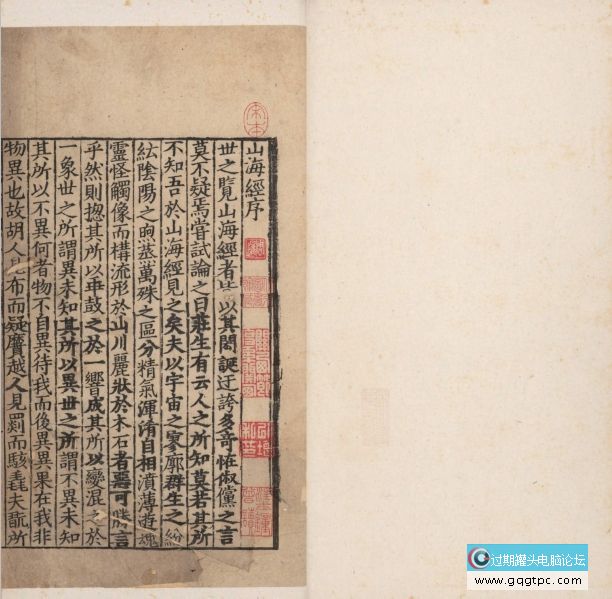 宋本
山海經序
世之覽山海經者皆以其閎誕迂誇多奇恠俶儻之言
莫不疑焉嘗試論之曰莊生有云人之所知莫若其所
不知吾於山海經見之矣夫以宇宙之寥廓群生之紛
紜陰陽之昫蒸萬殊之區分精氣渾淆自相濆薄遊魂
靈怪觸像而構流形於山川麗狀於木石者惡可勝言
乎然則揔其所以乖鼓之於一響成其所以變混之於
一象世之所謂異未知其所以異世之所謂不異未知
其所以不異何者物不自異待我而後異異果在我非
物異也故胡人見布而疑黂越人見罽而駭毳夫翫所
过期罐头电脑论坛
www.gqgtpc.com